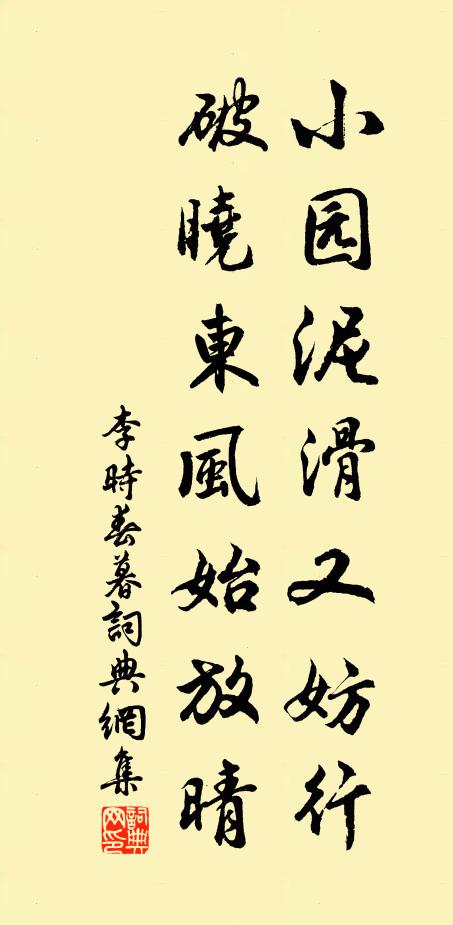 小园泥滑又妨行
破曉東風始放晴
李時春暮詞典網集
詞典网印